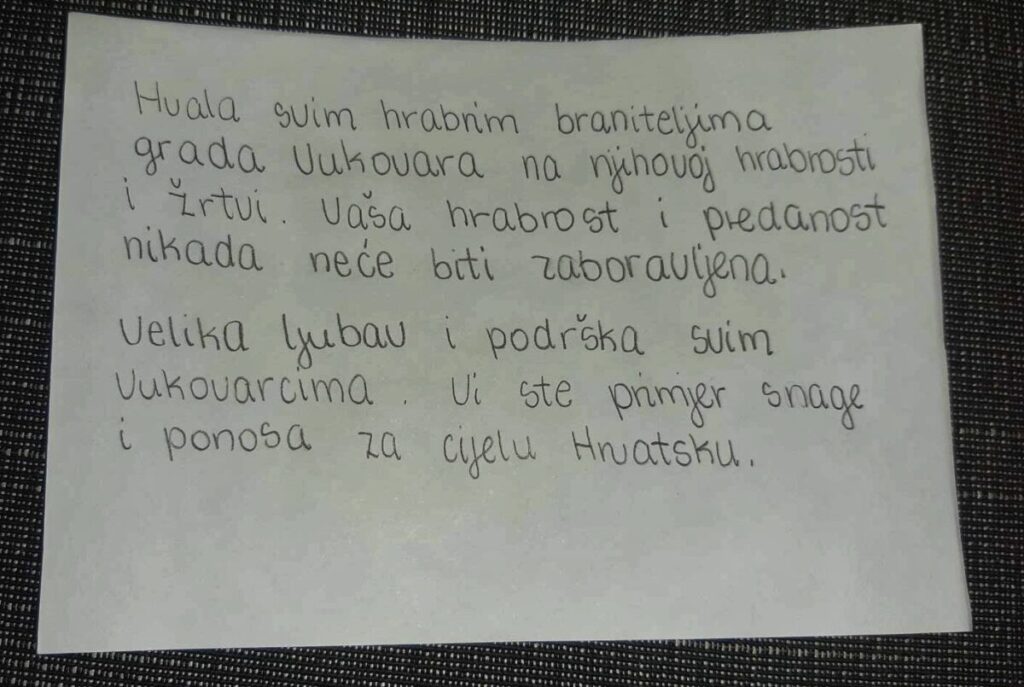 Hvala svim hrabrim braniteljima
grada Vukovara na njihovoj hrabrosti
i žrtvi. Vaša hrabrost i predanost
nikada neće biti zaboravljena.
Velika ljubav i podrška svim
Vukovarcima. Vi ste primjer snage
i ponosa za cijelu Hrvatsku.